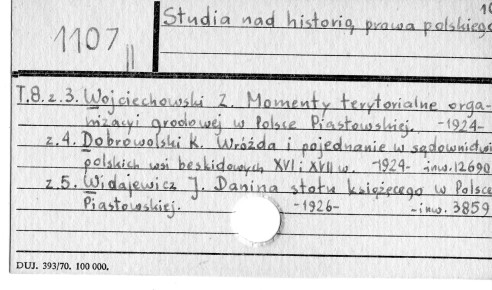 10
Studia nad historią prawa polskiego
1107
II
T.8. z.3. Wojciechowski Z. Momenty terytorialne orga-
nizacyi grodowej w Polsce Piastowskiej. -1924-
z.4. Dobrowolski K. Wróżda i pojednanie w sądownictwi
polskich wsi beskidowych XVI i XVII w. -1924- inw. 12690
z.5. Widajewicz J. Danina stołu książęcego w Polsce
Piastowskiej. -1926- -inw. 3859
DUJ. 393/70. 100 000.